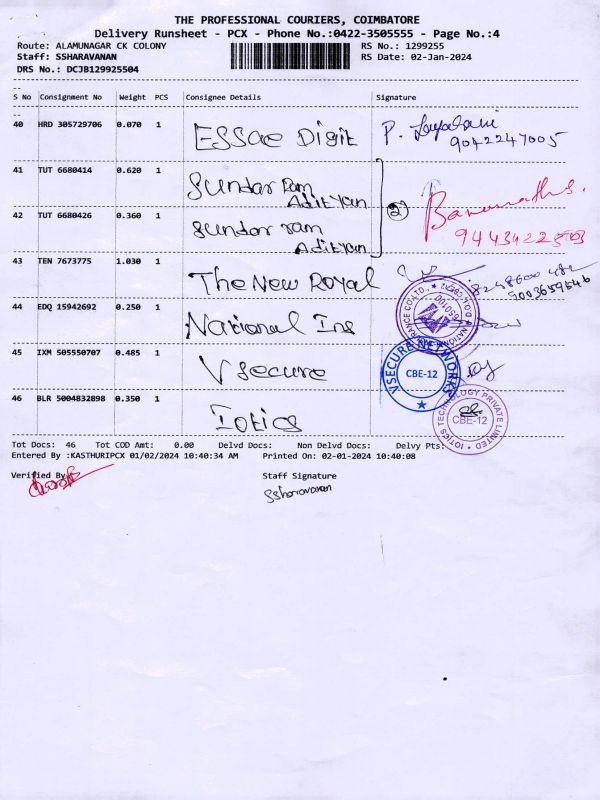 THE PROFESSIONAL COURIERS, COIMBATORE
Delivery Runsheet - PCX - Phone No.:0422-3505555 - Page No.:4
Route: ALAMUNAGAR CK COLONY RS No.: 1299255
Staff: SSHARAVANAN RS Date: 02-Jan-2024
DRS No.: DCJB129925504
S No Consignment No Weight PCS Consignee Details Signature
40 HRD 305729706 0.070 1 Essae Digit P.
9042247005
41 TUT 6680414 0.620 1 Sundar Ram
Adityan
2
42 TUT 6680426 0.360 1 Sundar ram
Adityan
43 TEN 7673775 1.030 1 The New Royal
9003659646
44 EDQ 15942692 0.250 1 National Ins
45 IXM 505550707 0.485 1 Vsecure
VISECURE NETWORKS
CBE-12
46 BLR 5004832898 0.350 1 Iotics
IOTICS TECHNOLOGY PRIVATE LIMITED
CBE-12
Tot Docs: 46 Tot COD Amt: 0.00 Delvd Docs: Non Delvd Docs: Delvy Pts:
Entered By :KASTHURIPCX 01/02/2024 10:40:34 AM Printed On: 02-01-2024 10:40:08
Verified By Staff Signature
Ssharavanan